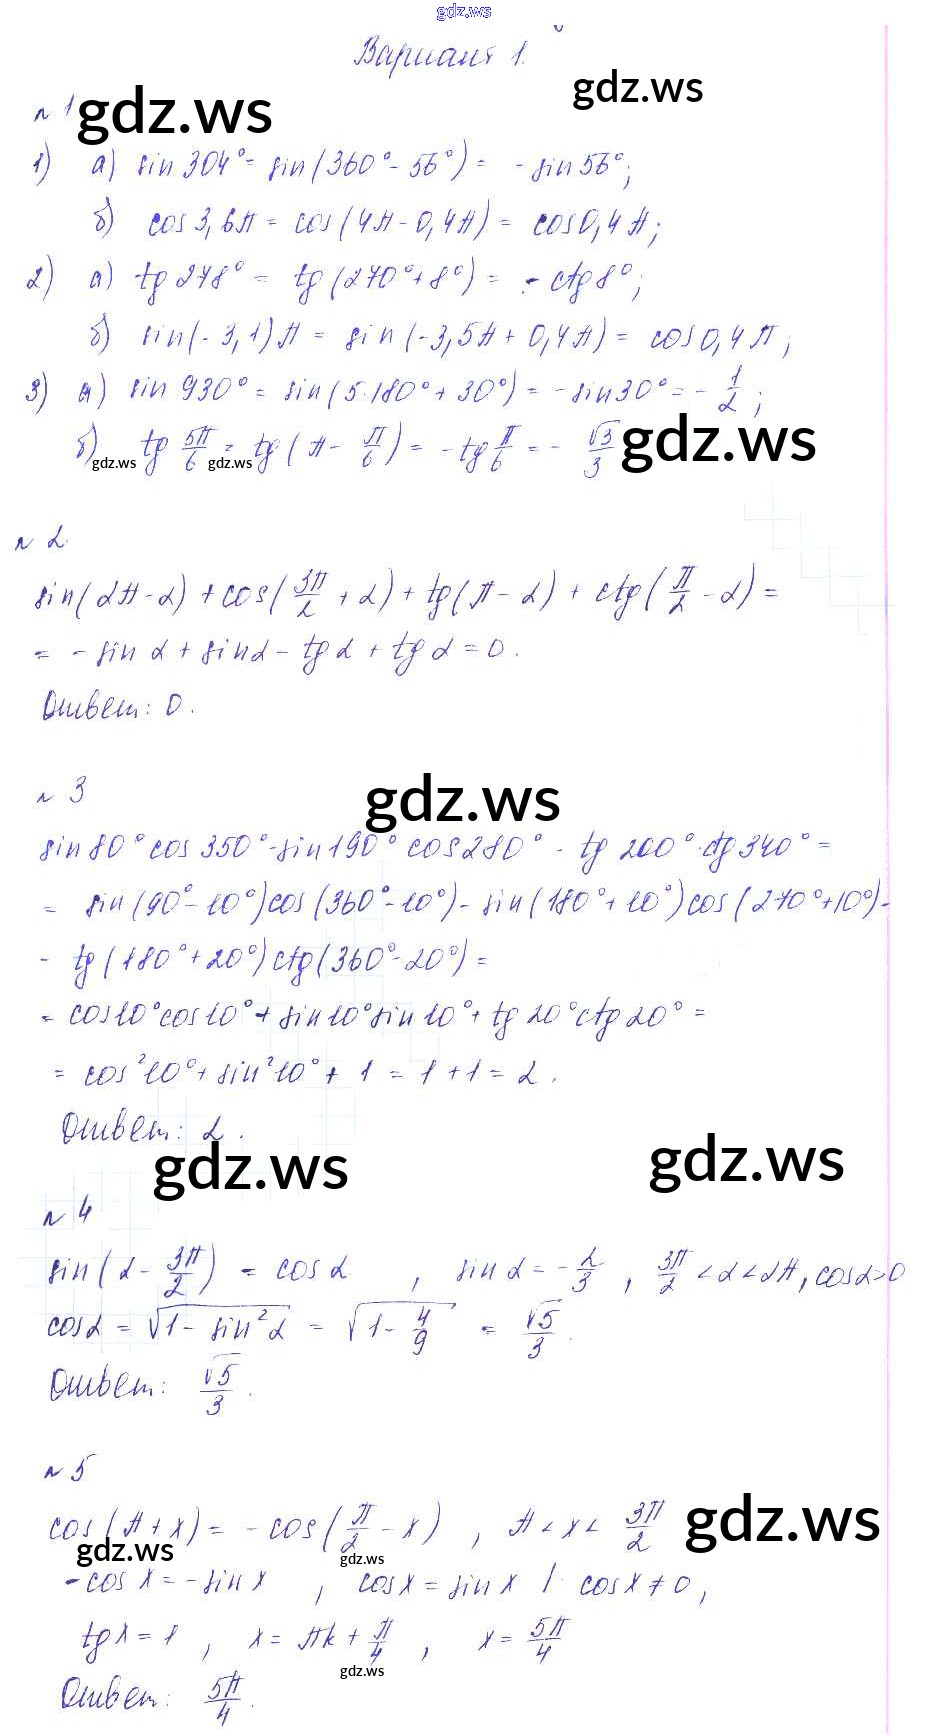 gdz.ws
Вариант 1.
gdz.ws
№ 1 gdz.ws
1) а) sin 304° = sin(360° - 56°) = - sin 56°;
б) cos 3,6π = cos(4π - 0,4π) = cos 0,4π;
2) а) tg 278° = tg(270° + 8°) = - ctg 8°;
б) sin(-3,1)π = sin(-3,5π + 0,4π) = cos 0,4π;
3) а) sin 930° = sin(5·180° + 30°) = - sin 30° = - 1/2;
б) tg 5π/6 = tg(π - π/6) = - tg π/6 = - √3/3 gdz.ws
gdz.ws gdz.ws
№ 2
sin(2π - α) + cos(3π/2 + α) + tg(π - α) + ctg(π/2 - α) =
= - sin α + sin α - tg α + tg α = 0.
Ответ: 0.
№ 3 gdz.ws
sin 80° cos 350° - sin 190° cos 280° - tg 200° · ctg 340° =
= sin(90° - 10°) cos(360° - 10°) - sin(180° + 10°) cos(270° + 10°) -
- tg(180° + 20°) ctg(360° - 20°) =
= cos 10° cos 10° + sin 10° sin 10° + tg 20° ctg 20° =
= cos² 10° + sin² 10° + 1 = 1 + 1 = 2.
Ответ: 2.
gdz.ws gdz.ws
№ 4
sin(α - 3π/2) = cos α , sin α = - 2/3 , 3π/2 < α < 2π, cos α > 0
cos α = √(1 - sin² α) = √(1 - 4/9) = √5/3.
Ответ: √5/3.
№ 5
cos(π + x) = - cos(π/2 - x) , π < x < 3π/2 gdz.ws
gdz.ws gdz.ws
- cos x = - sin x , cos x = sin x |· cos x ≠ 0,
tg x = 1 , x = πk + π/4 , x = 5π/4
gdz.ws
Ответ: 5π/4.